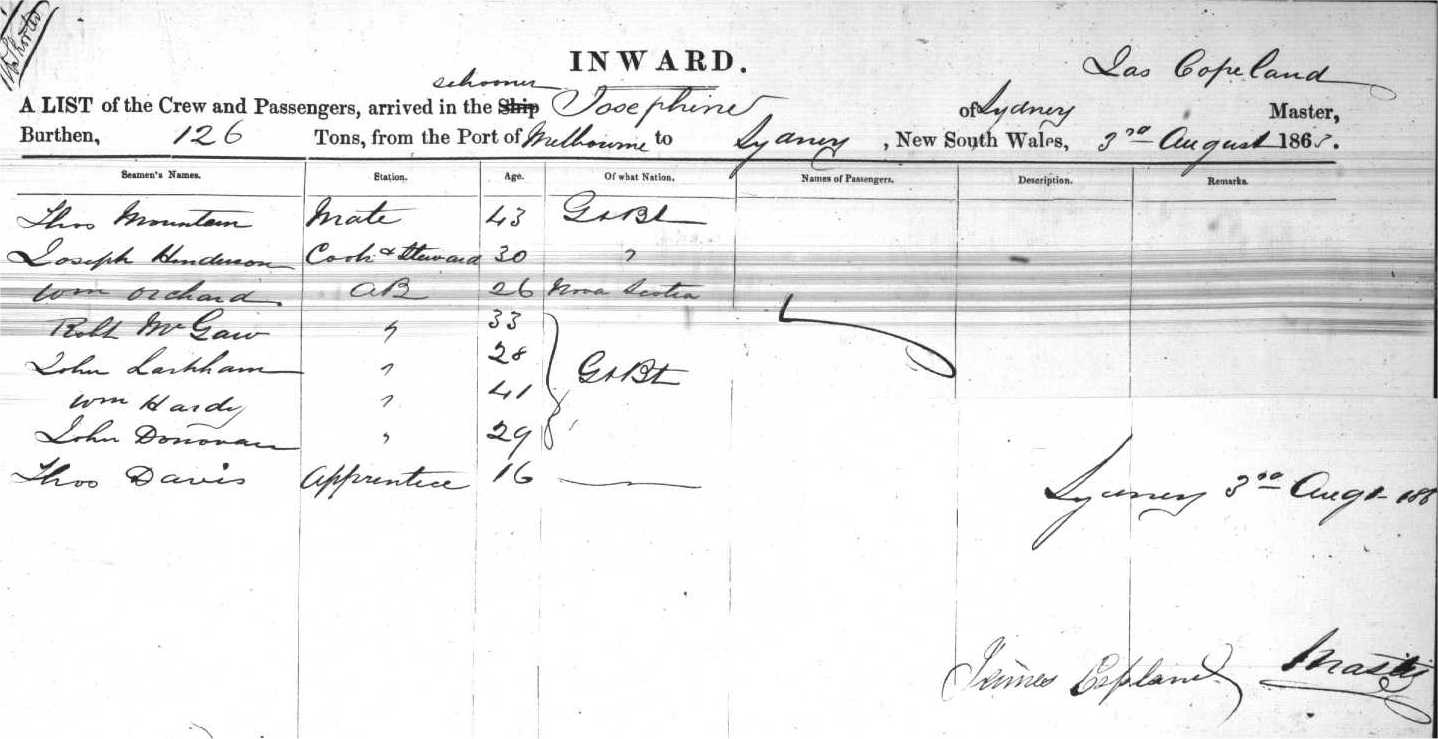 INWARD.
Jas Copeland
schooner
A LIST of the Crew and Passengers, arrived in the Ship Josephine of Sydney Master,
Burthen, 126 Tons, from the Port of Melbourne to Sydney, New South Wales, 3rd August 1863.
Seamen's Names. Station. Age. Of what Nation. Names of Passengers. Description. Remarks.
Thos Mountain Mate 43 Gt Bt
Joseph Henderson Cook & Steward 30 "
Wm Orchard AB 26 Nova Scotia
Robt McGaw " 33
John Larkham " 28 Gt Bt
Wm Hardy " 41
John Donovan " 29
Thos Davis Apprentice 16 —
Sydney 3rd Augt 186
James Copeland Master